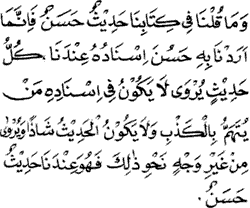 وَمَا قُلْنَا فِي كِتَابِنَا حَدِيْثٌ حَسَنٌ فَاِنَّمَا
اَرَدْنَا بِهٖ حَسُنَ اِسْنَادُهُ عِنْدَنَا، كُلُّ
حَدِيْثٍ يُرْوٰى لَا يَكُوْنُ فِي اِسْنَادِهٖ مَنْ
يُتَّهَمُ بِالْكَذِبِ وَلَا يَكُوْنُ الْحَدِيْثُ شَاذًّا وَيُرْوٰى
مِنْ غَيْرِ وَجْهٍ نَحْوَ ذٰلِكَ فَهُوَ عِنْدَنَا حَدِيْثٌ
حَسَنٌ.